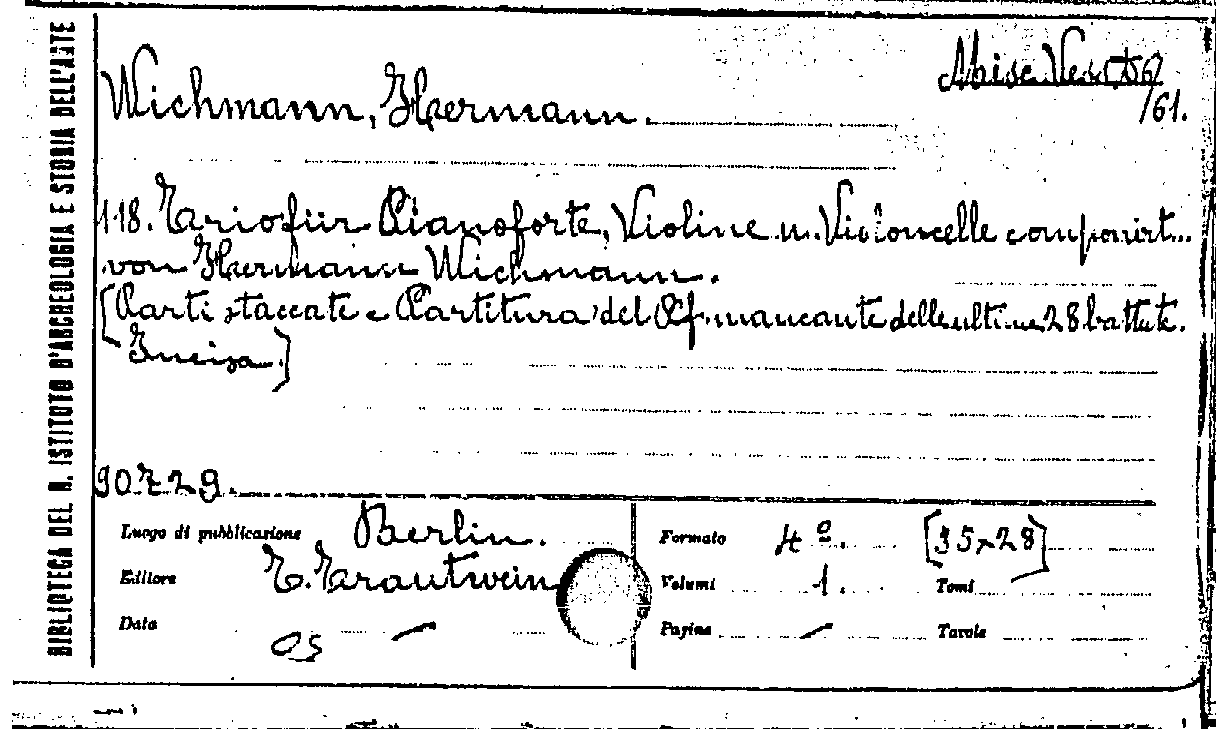 BIBLIOTECA DEL R. ISTITUTO D'ARCHEOLOGIA E STORIA DELL'ARTE
Wichmann, Hermann.
Misc. Vess.
/61.
118. Trio für Pianoforte, Violine u. Violoncelle componirt...
von Hermann Wichmann.
[Parti staccate e Partitura del Pf. mancante delle ultime 28 battute.
Incisa.]
90729.
Luogo di pubblicazione Berlin.
Editore T. Trautwein
Data —
OS
Formato 4º. [35x28]
Volumi 1. Tomi
Pagine — Tavole